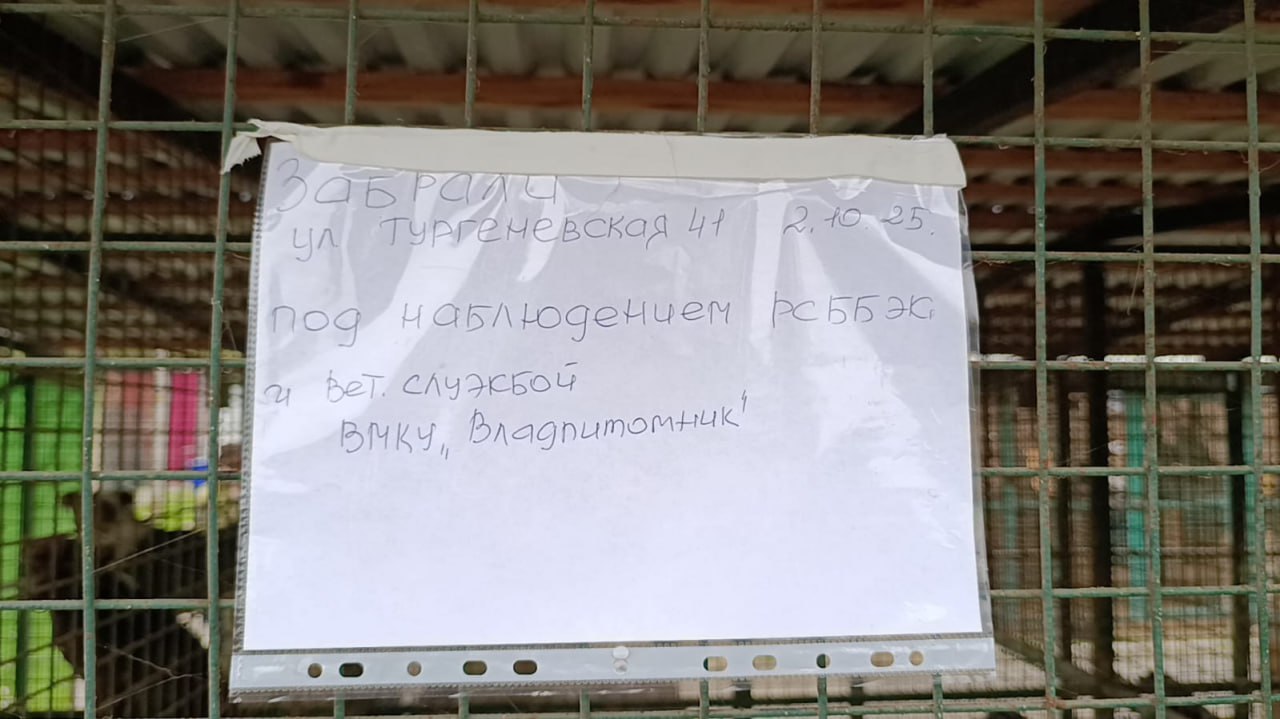 Забрали
ул Тургеневская 41 2.10.25.
под наблюдением РСББЖ
и Вет. службой
ВМКУ „Владпитомник"